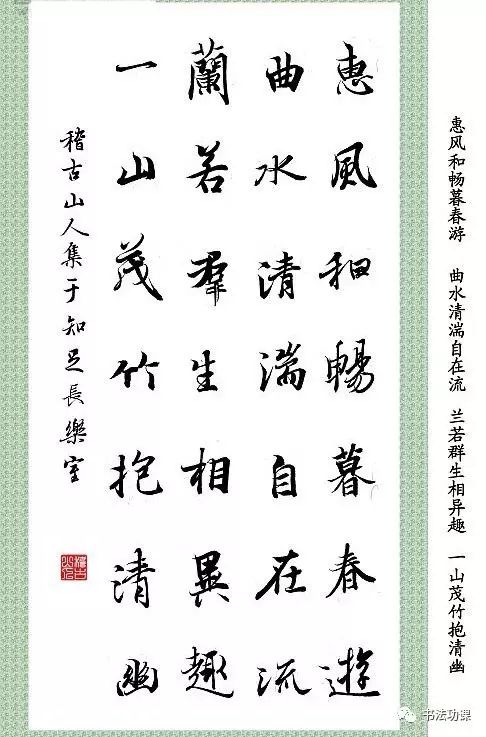 惠風和暢暮春遊
曲水清湍自在流
蘭若羣生相異趣
一山茂竹抱清幽
稽古山人集于知足長樂室
惠风和畅暮春游 曲水清湍自在流 兰若群生相异趣 一山茂竹抱清幽
书法功课